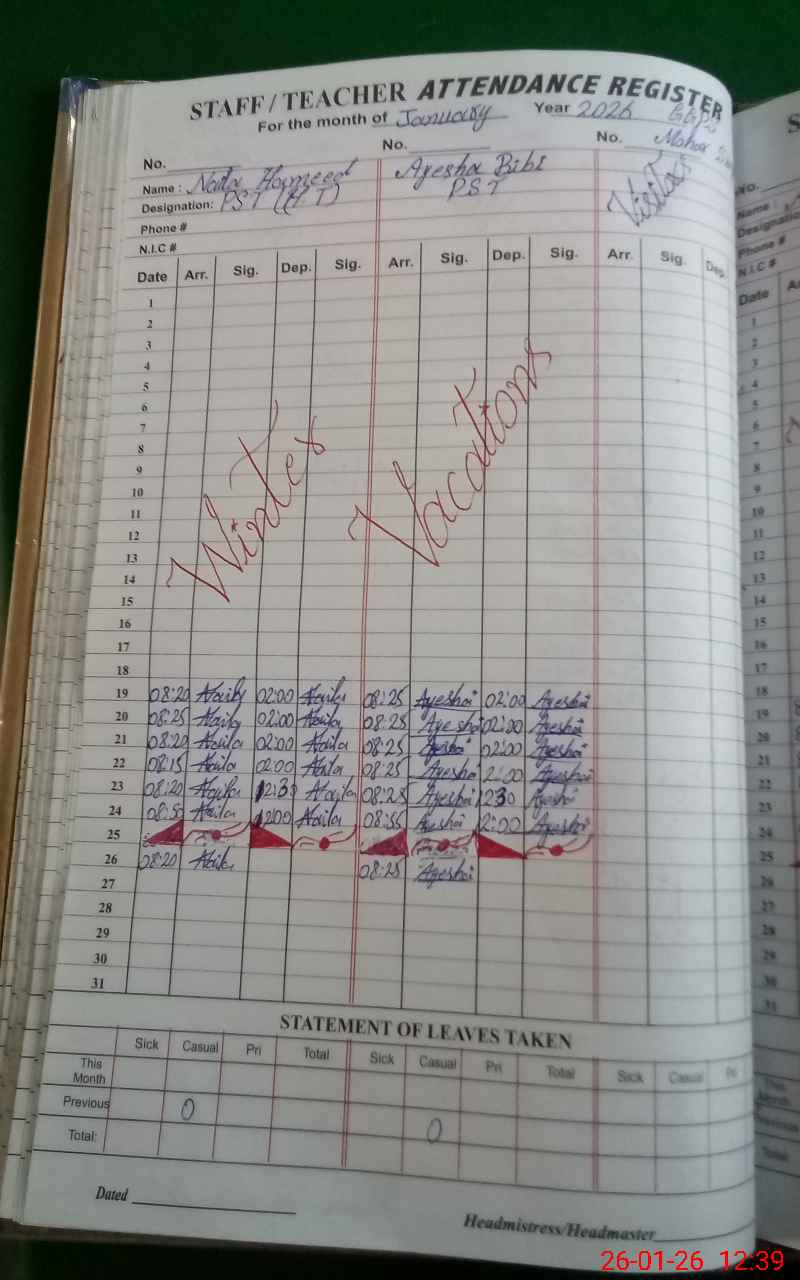 STAFF/TEACHER ATTENDANCE REGISTER
For the month of January Year 2026
No. No. No.
Name: Naila Hameed Ayesha Bibi Visitors
Designation: PST (H.T) PST
Phone #
N.I.C #
Date Arr. Sig. Dep. Sig. Arr. Sig. Dep. Sig. Arr. Sig. Dep.
1
2
3
4
5
6
7
8
9
10
11
12
13
14
15
16
17
18
Winter Vacations
19 08:20 Naila 02:00 Naila 08:25 Ayesha 02:00 Ayesha
20 08:25 Naila 02:00 Naila 08:25 Ayesha 02:00 Ayesha
21 08:20 Naila 02:00 Naila 08:25 Ayesha 02:00 Ayesha
22 08:15 Naila 02:00 Naila 08:25 Ayesha 2:00 Ayesha
23 08:20 Naila 12:30 Naila 08:25 Ayesha 1230 Ayesha
24 08:50 Naila 1200 Naila 08:55 Ayesha 12:00 Ayesha
25
26 08:20 Naila 08:25 Ayesha
27
28
29
30
31
STATEMENT OF LEAVES TAKEN
Sick Casual Pri Total Sick Casual Pri Total Sick Casual Pri
This Month
Previous 0 0
Total:
Dated
Headmistress/Headmaster
26-01-26 12:39